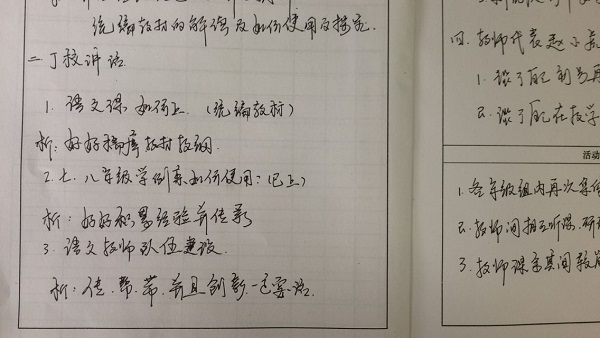 统编教材的解读及如何使用及探究.
二 丁校讲话
1. 语文课如何上. (统编教材)
析: 好好揣摩教材教纲.
2. 七. 八年级学例案如何使用: (已上)
析: 好好积累经验并传承
3. 语文教师队伍建设.
析: 传. 帮. 带. 并且创新.
四. 教师代表
1. 谈了自己
2. 谈了自己在教学
活动
1. 各年级组内再次集体
2. 教师间相互听课. 研
3. 教师课余其间